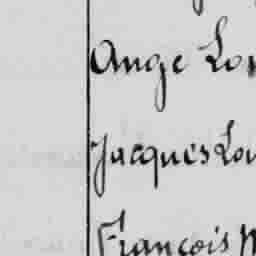 Ange Lou
Jacques Lou
François M